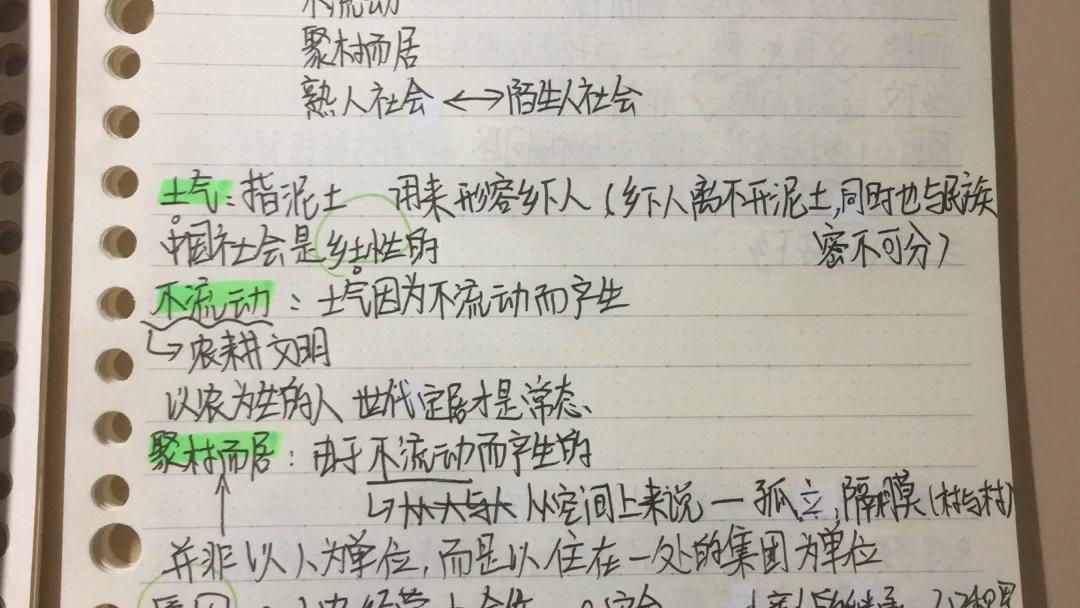 不流动
聚村而居
熟人社会 ↔ 陌生人社会
土气：指泥土 用来形容乡下人（乡下人离不开泥土,同时也与民族
中国社会是乡土性的 密不可分）
不流动：土气因为不流动而产生
↳农耕文明
以农为生的人 世代定居才是常态、
聚村而居：由于不流动而产生的
↳ 从空间上来说 — 孤立,隔膜(村与村)
并非以人为单位,而是以住在一处的集团为单位
原因